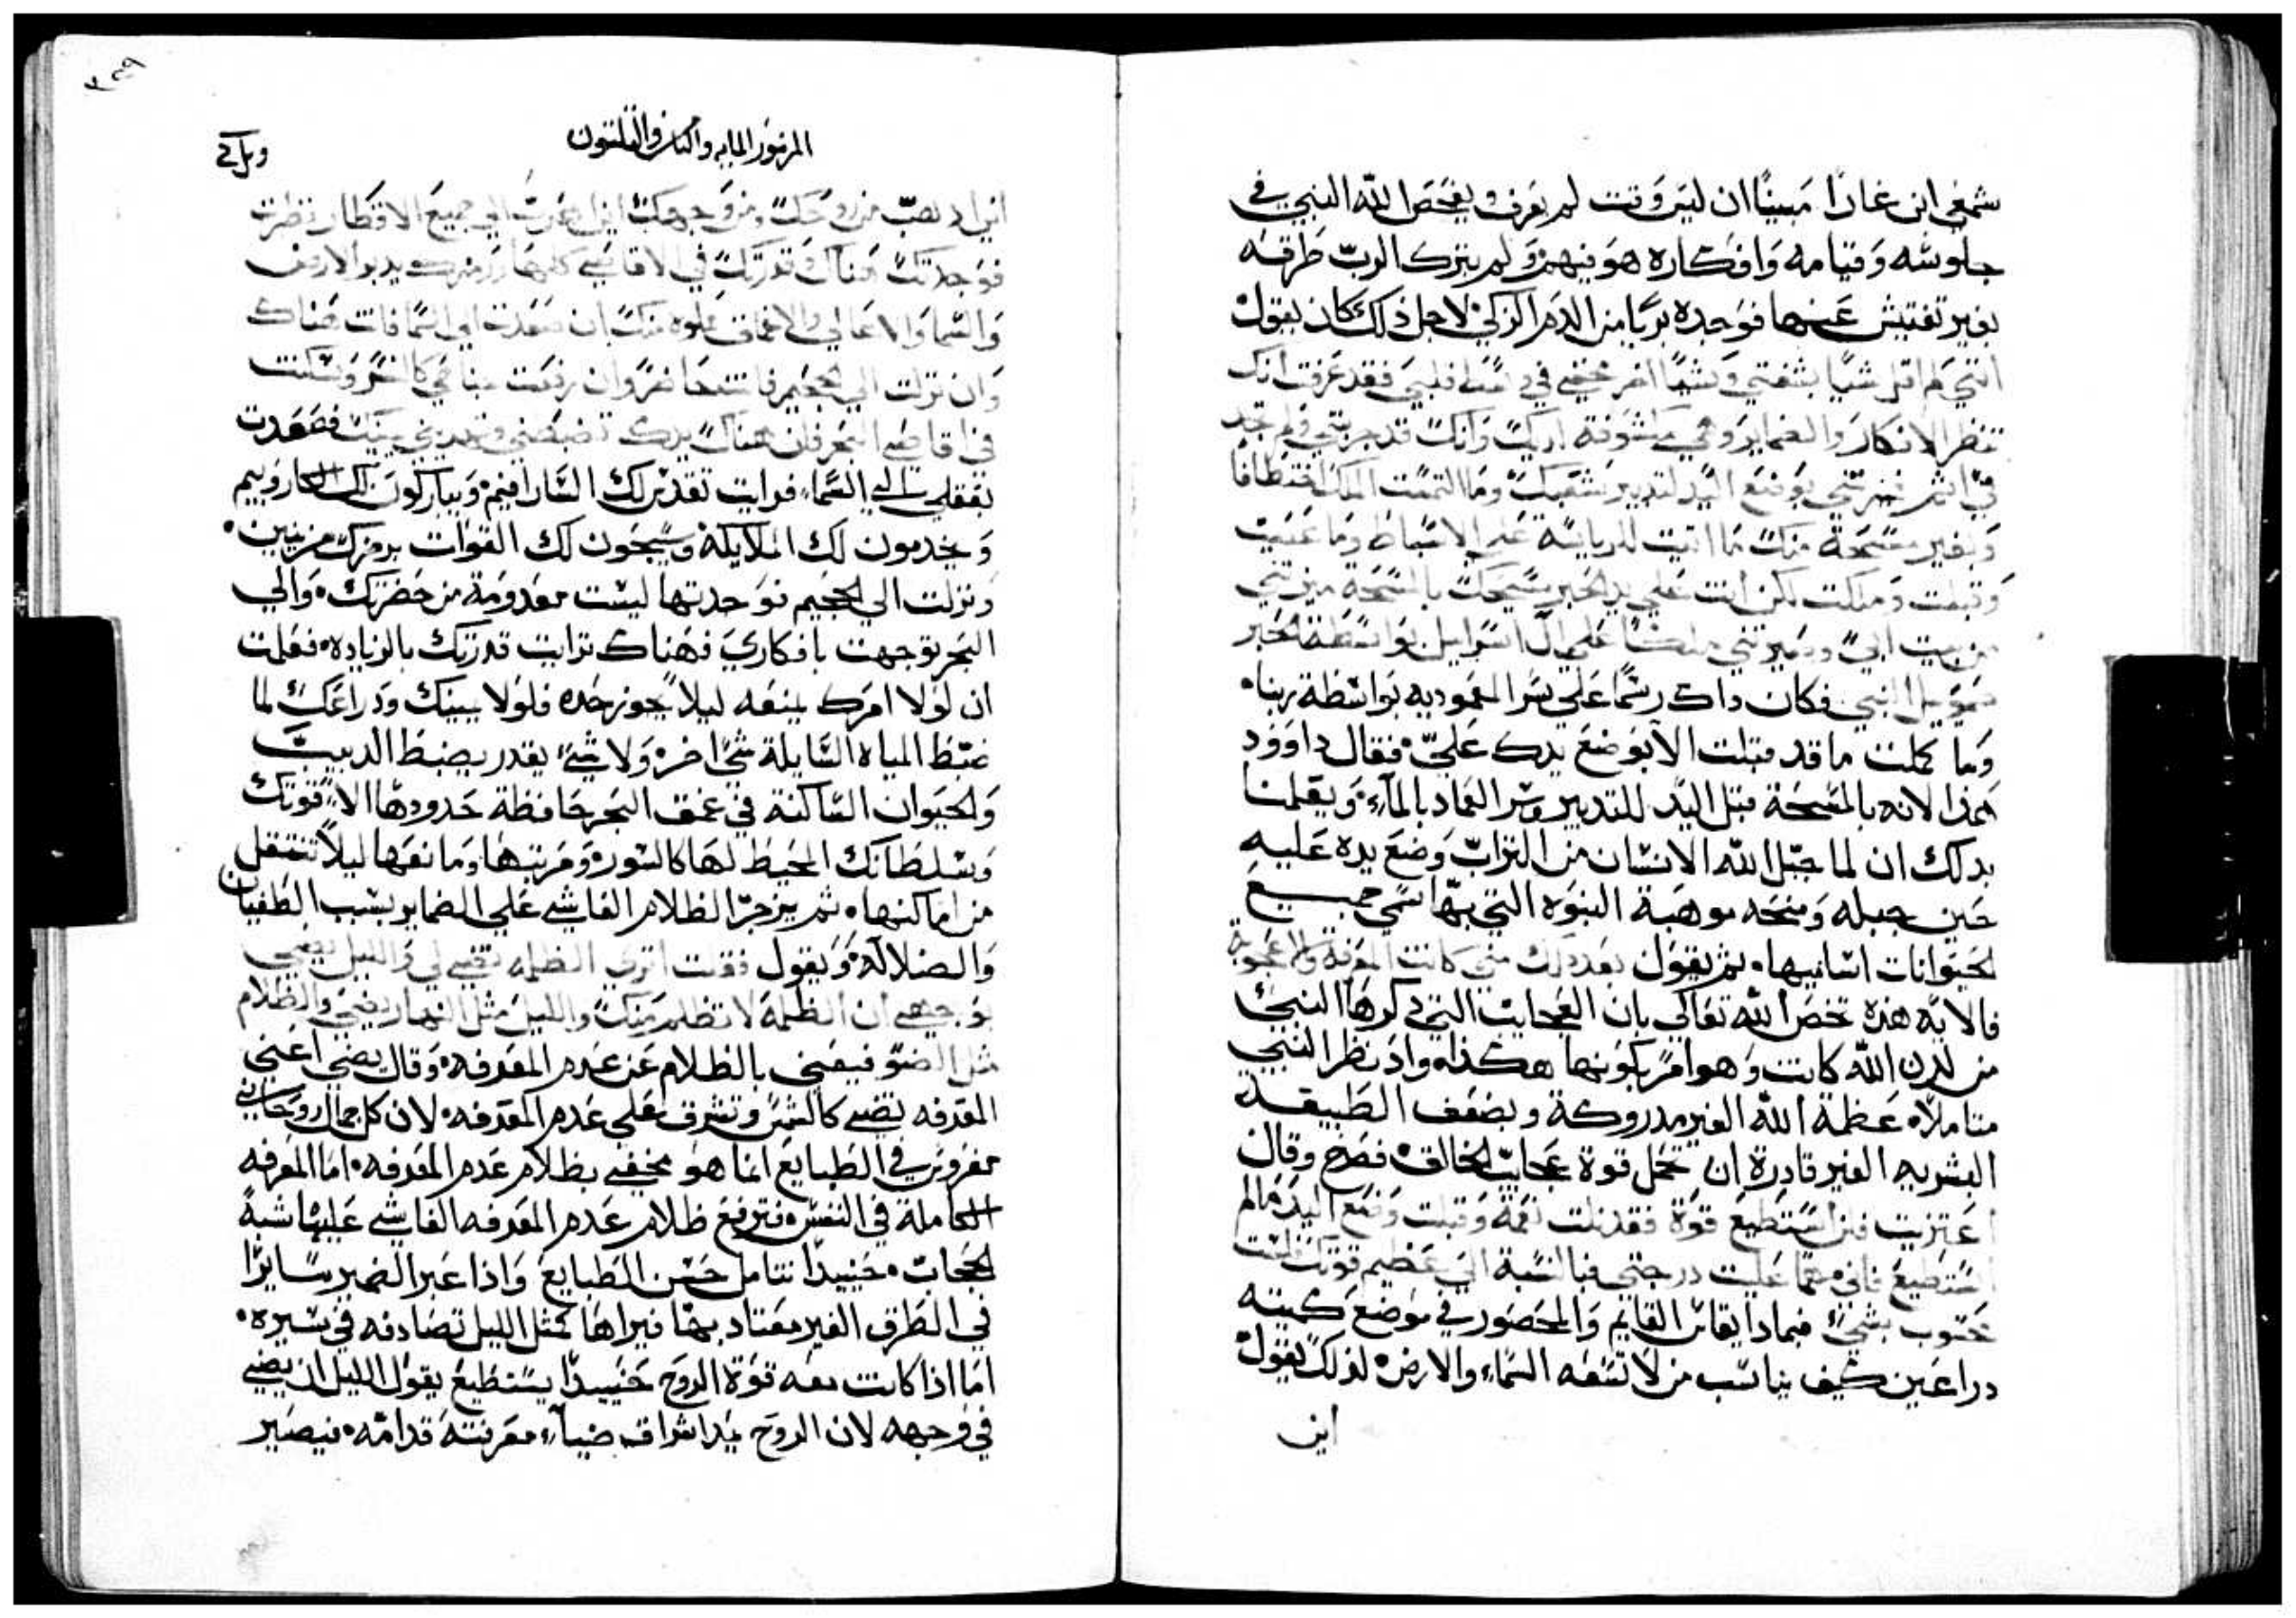 شمعي ابن غارا مبينًا ان ليس وقت لم يعرف ويفحص الله النبي في
جلوسه وقيامه وافكاره هو فيهم ولم يترك الرب طرقه
بغير تفتيش عنها فوجده بريا من الدم الزكي لاجل ذلك كان يقول
شيا بشفتي فقد عرفت انك
تنظر الافكار والضماير وهي مكشوفة لديك وانك قد جربتني ولم تجد
في اثم بوضع اليد لتدبير شعبك وما التمست الملك اختطافا
وبغير مسحة منك ما اتيت للرياسة علي الاسباط وما
وقبلت وملكت لكن انت علي يد الحبر مسحتك بالمسحة ميزتني
من بيت ابي وصيرتني ملكا علي ال اسراييل بواسطة الحبر
صمويل النبي فكان داك رسما علي سر المعموديه بواسطة ربنا
وبها كملت ما قد قبلت الا بوضع يدك علي فقال داوود
هذا لانه بالمسحة قبل اليد للتدبير وسر العماد بالماء ويعلمنا
بدلك ان لما جبل الله الانسان من التراب وضع يده عليه
حين جبله ومنحه موهبة النبوه التي بها سمي جميع
الحيوانات اساميها ثم يقول بعد ذلك مني كانت المعرفة والاعجوبة
فالايه هذه تخص الله تعالي بان العجايب التي ذكرها النبي
من لدن الله كانت وهو امر بكونها هكذا واذ نظر النبي
متاملا عظمة الله الغير مدروكة وبضعف الطبيعة
البشريه الغير قادرة ان تحمل قوة عجايب الخالق فصرخ وقال
اعتزيت فلن استطيع قوة فقد نلت نعمة وقبلت وضع اليد مالم
استطيع فاني مهما عليت درجتي فبالنسبة الي عظيم قوتك فلست
محسوب بشي فبمادا يقاس القايم والمحصور في موضع كميته
دراعين كيف يناسب من لا تسعه السماء والارض لذلك يقول
اين
المزمور المايه والثامن والثلثون
اين اذهب من روحك ومن وجهك اين اهرب الي جميع الاقطار نظرت
فوجدتك هناك وقدرتك في الاقاصي كلها ورمزك يدبر الارض
والسما والاعالي والاعماق مملوه منك ان صعدت الي السما فانت هناك
وان نزلت الي الجحيم فانت حاضر وان رفعت جناحي كالنسر وسكنت
في اقاصي البحر فان هناك يدك تضبطني وتهديني يمينك فصعدت
بعقلي الي السماء فرايت تقديس لك السارافيم ويباركون لك الكاروبيم
ويخدمون لك الملايكة ويسبحون لك القوات برمزك مزينين
ونزلت الي الجحيم فوجدتها ليست معدومة من حضرتك والي
البحر توجهت بافكاري فهناك ترايت قدرتك بالزياده فعلمت
ان لولا امرك يمنعه ليلا يجوز حده فلولا يمينك ودراعك لما
ضبط المياه السايلة شي اخر ولا شي يقدر يضبط الدبيب
والحيوان الساكنة في عمق البحر حافظة حدودها الا قوتك
وسلطانك المحيط لها كالسور ومرتبها ومانعها ليلا تنتقل
من اماكنها ثم يزجر الظلام الغاشي علي الضماير بسبب الطغيان
والضلاله ويقول فقلت اتري الظلمه تضي لي والليل يضي
بوجهي ان الظلمة لا تظلم منك والليل مثل النهار يضي والظلام
مثل الضو فيعني بالظلام عن عدم المعرفه وقال يضي اعني
المعرفه تضي كالشمس وتشرق علي عدم المعرفه لان كل جمال روحاني
مغروس في الطبايع انما هو مخفي بظلام عدم المعرفه اما المعرفه
الكاملة في النفس فترفع ظلام عدم المعرفه الغاشي عليها شبه
الحجاب حينيدا نتامل حسن الطبايع واذا عبر الضمير سايرا
في الطرق الغير معتاد بها فيراها كمثل الليل تصادفه في سيره
اما اذا كانت معه قوة الروح حينيدا يستطيع يقول الليل ان يضي
في وجهه لان الروح اشراق ضياء معرفته قدامه فيصير